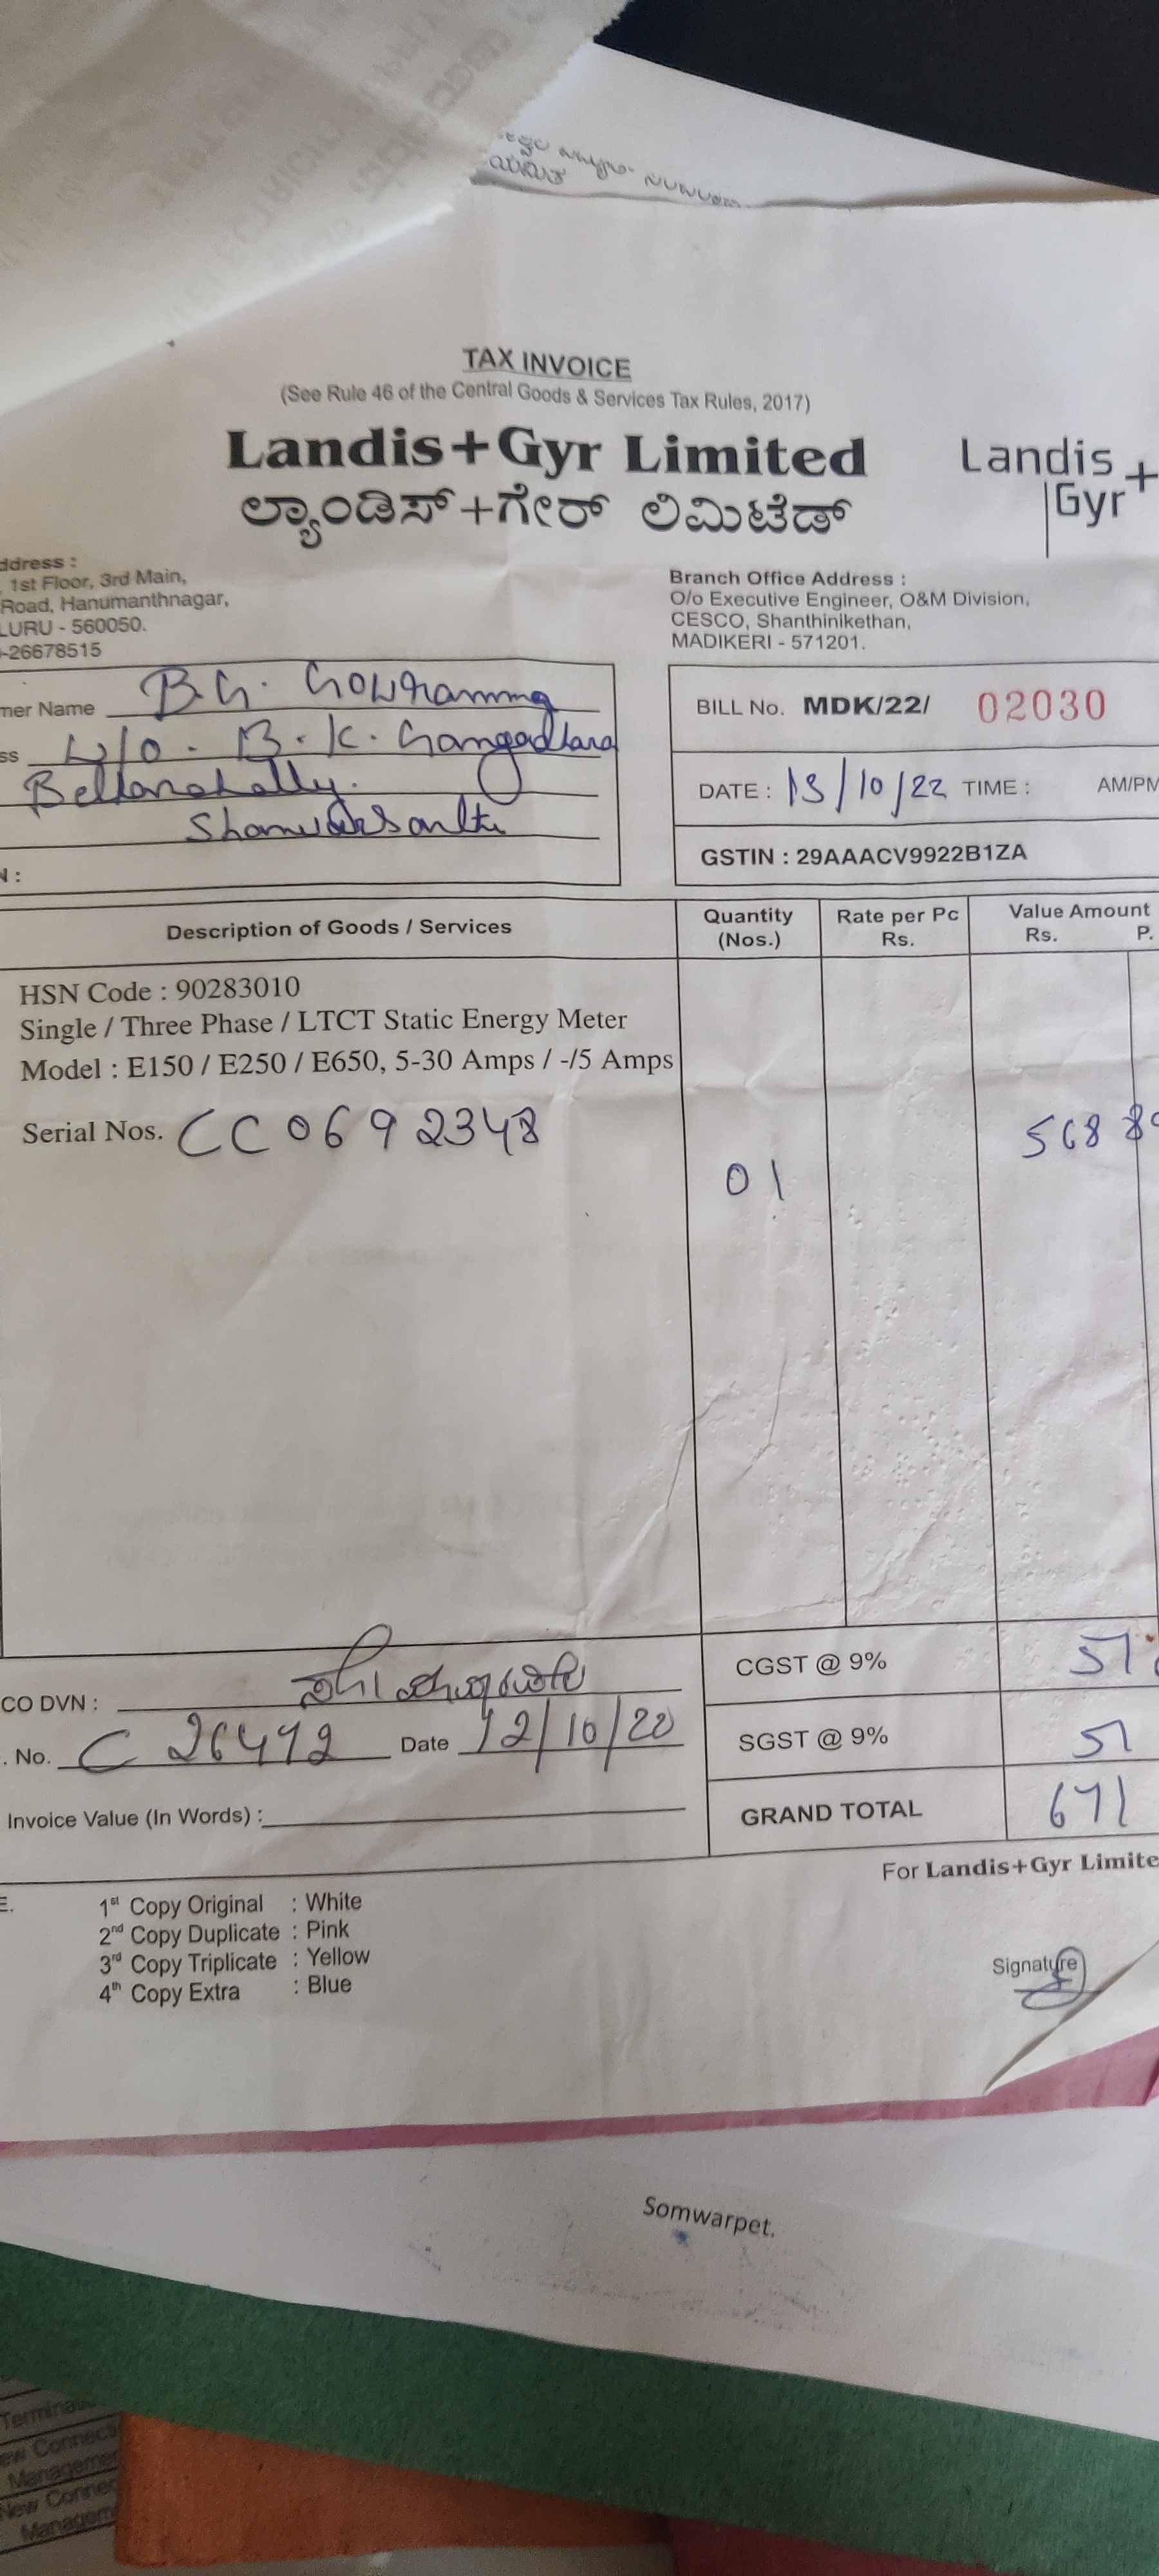 TAX INVOICE
(See Rule 46 of the Central Goods & Services Tax Rules, 2017)
Landis+Gyr Limited
Landis+
Gyr
ಲ್ಯಾಂಡಿಸ್+ಗೇರ್ ಲಿಮಿಟೆಡ್
ddress :
1st Floor, 3rd Main,
Road, Hanumanthnagar,
LURU - 560050.
-26678515
Branch Office Address :
O/o Executive Engineer, O&M Division,
CESCO, Shanthinikethan,
MADIKERI - 571201.
mer Name B.G. Gowramma
ss W/O. B.K. Gangadhara
Bellarahally.
N :
BILL No. MDK/22/ 02030
DATE : 13/10/22 TIME : AM/PM
GSTIN : 29AAACV9922B1ZA
Description of Goods / Services
Quantity (Nos.)
Rate per Pc Rs.
Value Amount
Rs. P.
HSN Code : 90283010
Single / Three Phase / LTCT Static Energy Meter
Model : E150 / E250 / E650, 5-30 Amps / -/5 Amps
Serial Nos. CC0692348
01
568
CGST @ 9% 51
CO DVN :
. No. C 26492 Date 12/10/22
SGST @ 9% 51
Invoice Value (In Words) :
GRAND TOTAL 671
For Landis+Gyr Limite
E.
1st Copy Original : White
2nd Copy Duplicate : Pink
3rd Copy Triplicate : Yellow
4th Copy Extra : Blue
Signature
Somwarpet.
ew Connecti
Managemen
New Connec
Managem